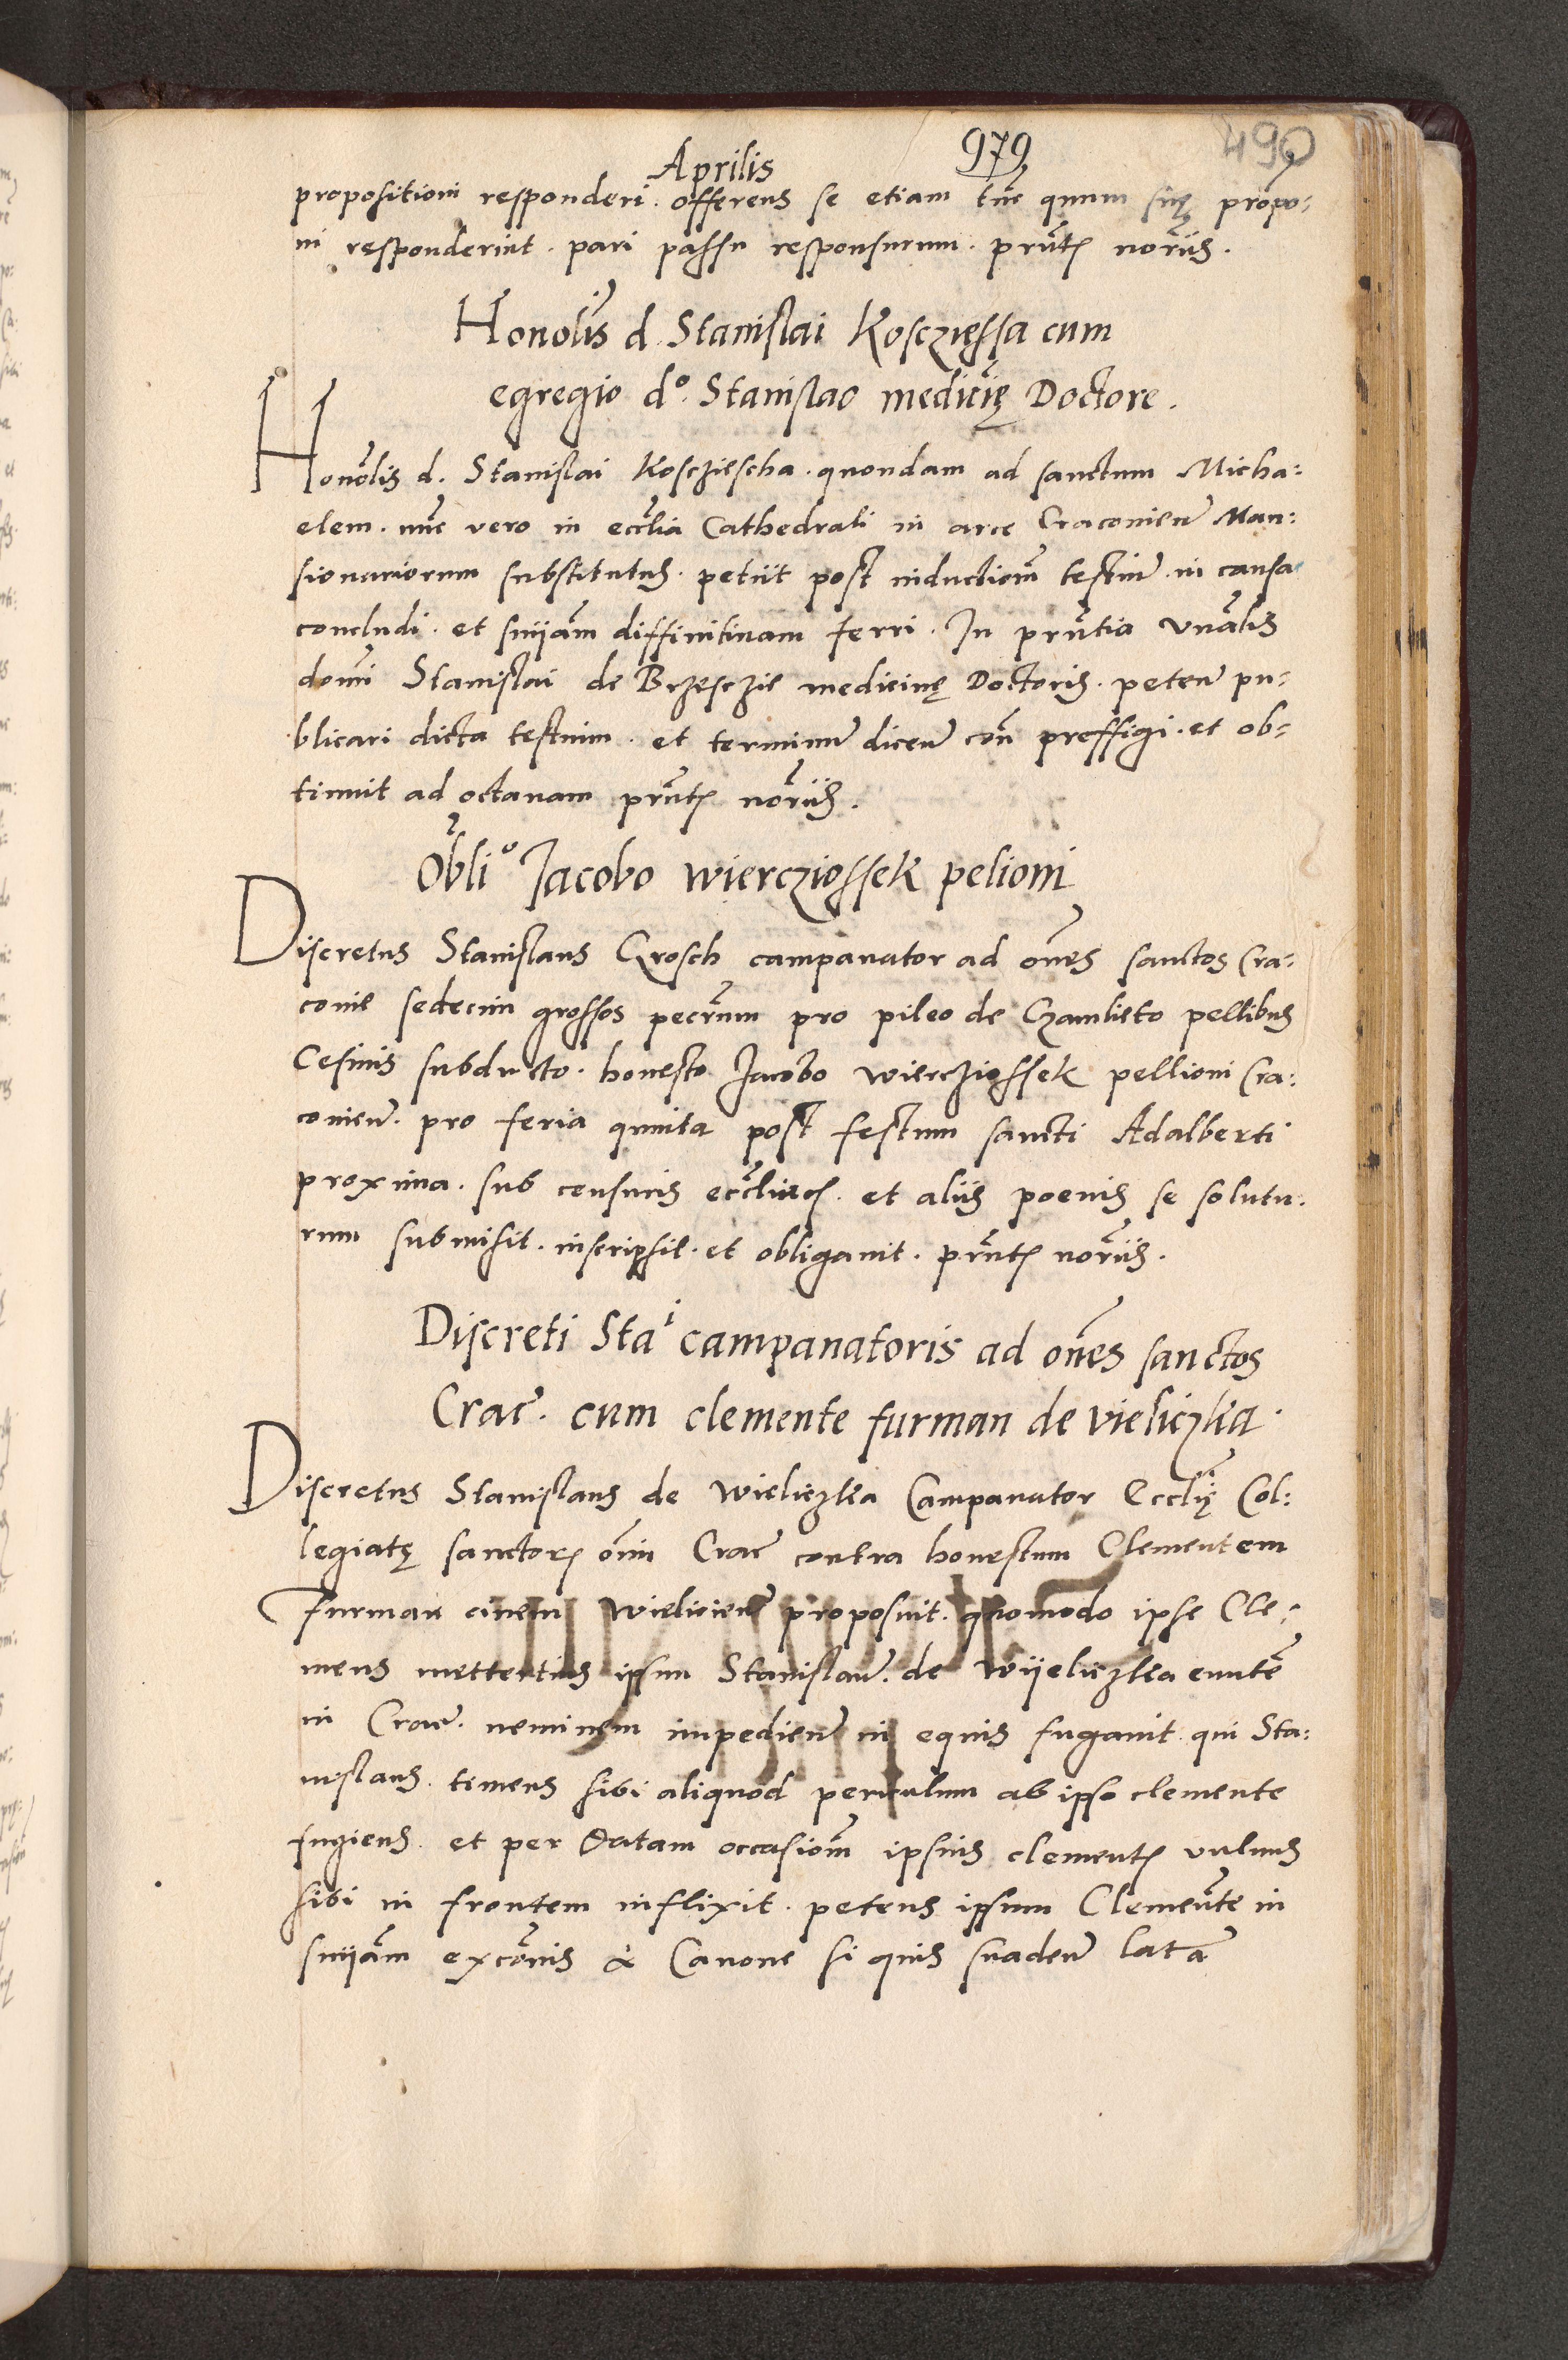 Aprilis 979 490
propositioni responderi. offerens se etiam tu̅c quum suę propo:
ni responderint. pari passu responsurum. pru̅tꝭ nor̃iis.
Honol̃is d. Stanislai Kosczyessa cum
egregio d°. Stanislao medici̅ę Doctore.
Honor̃lis d. Stanislai Koscziescha. quondam ad sanctum Micha:
elem. nu̅c vero in eccl̃ia Cathedrali in arce Cracovien̅ Man:
sionariorum substitutus. petiit post inductione̅ testiu̅ in causa
concludi. et sn̅iam diffinitivam ferri. In prn̅tia Vn̅alis
domi̅ Stanislai de Brzesczie medicinę Doctoris. peten̅ pu:
blicari dicta testium. et terminu̅ dicen̅ con̅ preffigi. et ob:
tinuit ad octavam prn̅tꝭ nor̃iis.
Obli° Jacobo Wiercziossek pelioni
Discretus Stanislaus Grosch campanator ad om̅es sanctos Cra:
covie sedecim grossos pecr̃um pro pileo de Czamleto pellibus
Cesinis subducto. honesto Jacobo Wiercziossek pellioni Cra:
covien̅. pro feria quinta post festum sancti Adalberti
proxima. sub censuris eccl̃iticꝭ. et aliis poenis se solutu:
rum submisit. inscripsit. et obligavit. prn̅tꝭ nor̃iis.
Discreti Stai campanatoris ad om̅es sanctos
Crac̅. cum clemente furman de vieliczka.
Discretus Stanislaus de Wieliczka Campanator Eccl̃ię Col:
legiatę sanctorꝭ om̅iu Crac̅ contra honestum Clementem
furman civem Wielicien̅ proposuit. quomodo ipse Cle:
mens mettertius ipsum Stanislau̅. de Wijeliczka eunte̅
in Crac̅. neminem impedien̅ in equis fugavit. qui Sta:
nislaus. timens sibi aliquod periculum ab ipso clemente
fugiens. et per datam occasione̅ ipsius clementꝭ vulnus
sibi in frontem inflixit. petens ipsum Clemente̅ in
sn̅iam exco̅nis & Canone si quis suaden̅ lata̅